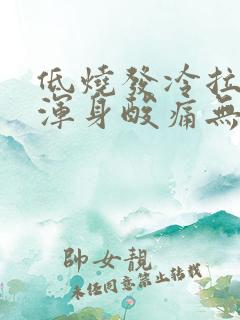 低燒發冷拉
渾身酸痛無
帥女靚
未經同意禁止轉載